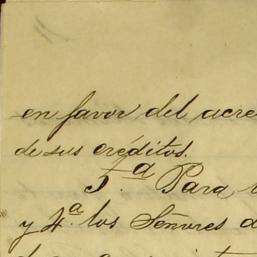 en favor del acre
de sus créditos.
5.ª Para
y 4.ª los Señores d